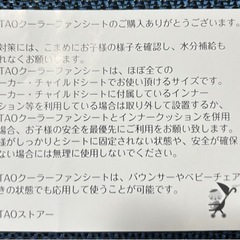 TAOクーラーファンシートのご購入ありがとうございます。
対策には、こまめにお子様の様子を確認し、水分補給も
れなくお願いします。
TAOクーラーファンシートは、ほぼ全ての
ーカー・チャイルドシートでお使い頂けるサイズです。
ーカー・チャイルドシートに付属しているインナー
ション等を利用している場合は取り外して設置するか、
TAOクーラーファンシートとインナークッションを併用
場合、お子様の安全を最優先にご利用をお願い致します。
様がしっかりとシートに固定されない状態や、安全が確保
ない場合には無理に使用しないでください。
TAOクーラーファンシートは、バウンサーやベビーチェア
きの状態でも応用して使うことが可能です。
TAOストアー